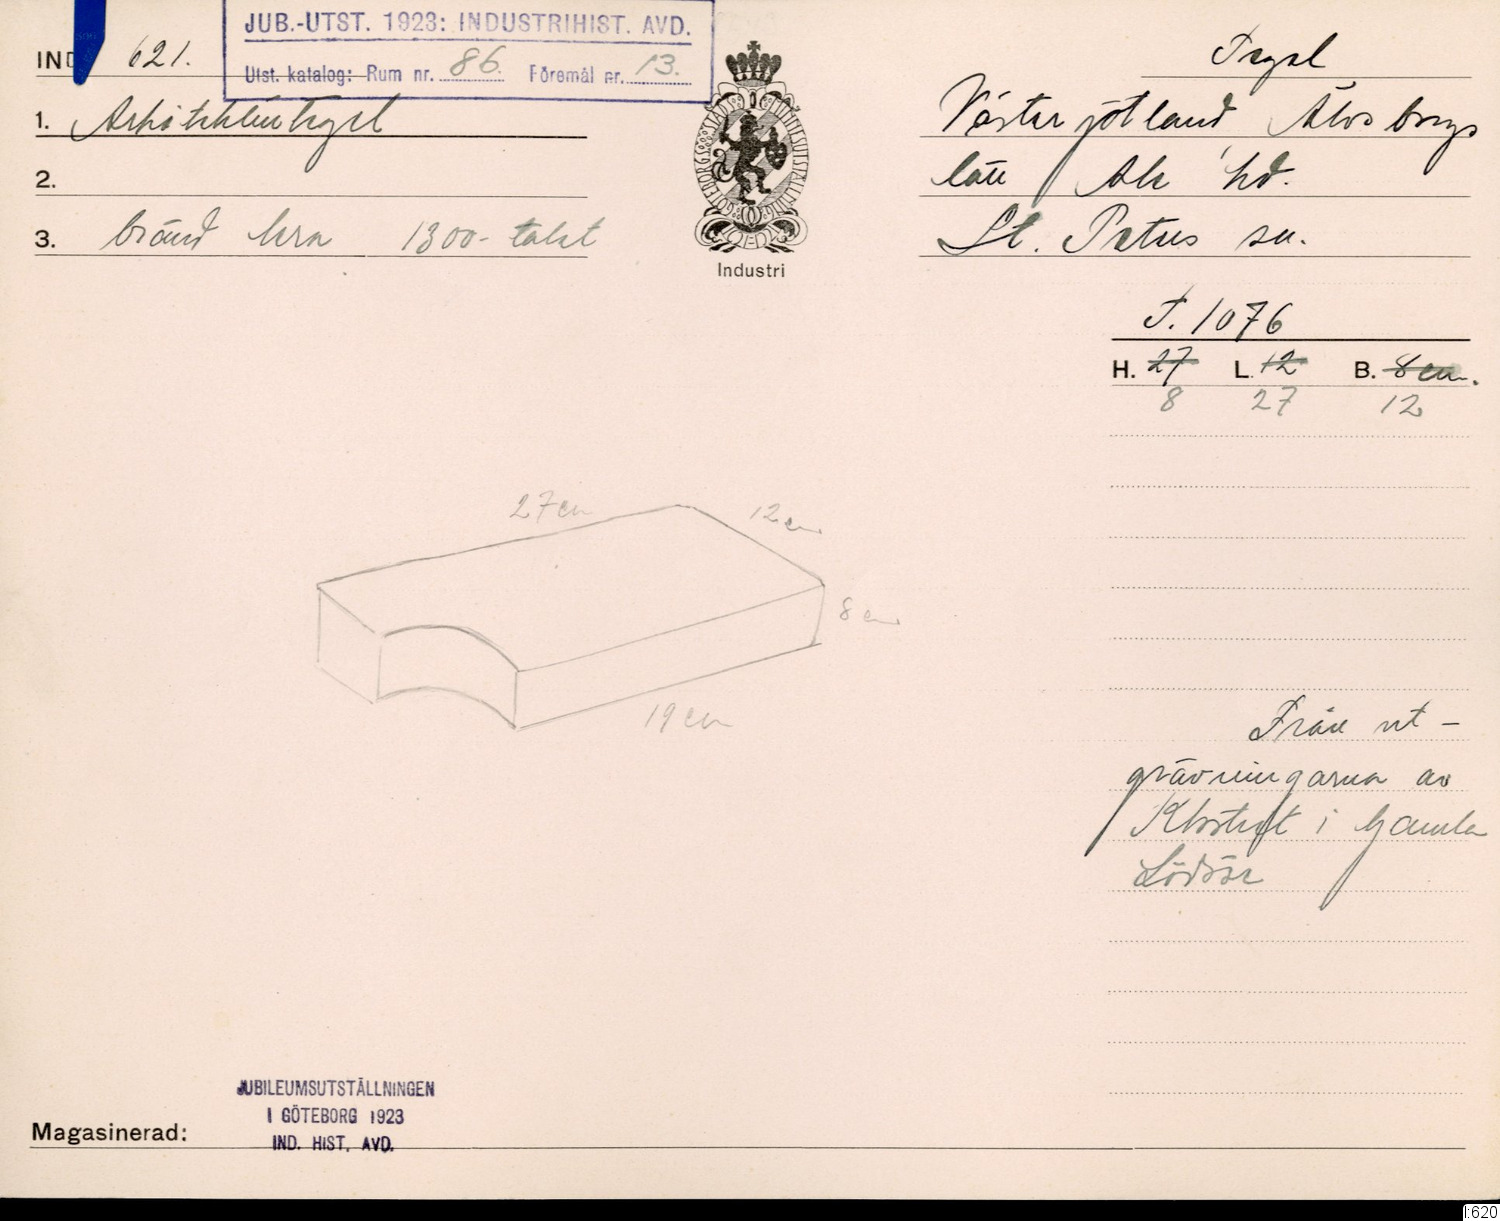 JUB.-UTST. 1923: INDUSTRIHIST. AVD.
Utst. katalog: Rum nr. 86. Föremål nr. 13.
IND 621.
Tegel
1. Arkitekturtegel
Västergötland Älvsborgs
2.
län Ale hd.
3. bränd lera 1300-talet
St. Petus sn.
GÖTEBORGS STADS MINNESUTSTÄLLNING
Industri
T. 1076
H. 27 L. 12 B. 8 cm.
8 27 12
27 cm
12 cm
8 cm
19 cm
Från ut-
grävningarna av
Klostret i Gamla
Lödöse
JUBILEUMSUTSTÄLLNINGEN
I GÖTEBORG 1923
IND. HIST. AVD.
Magasinerad:
I:620